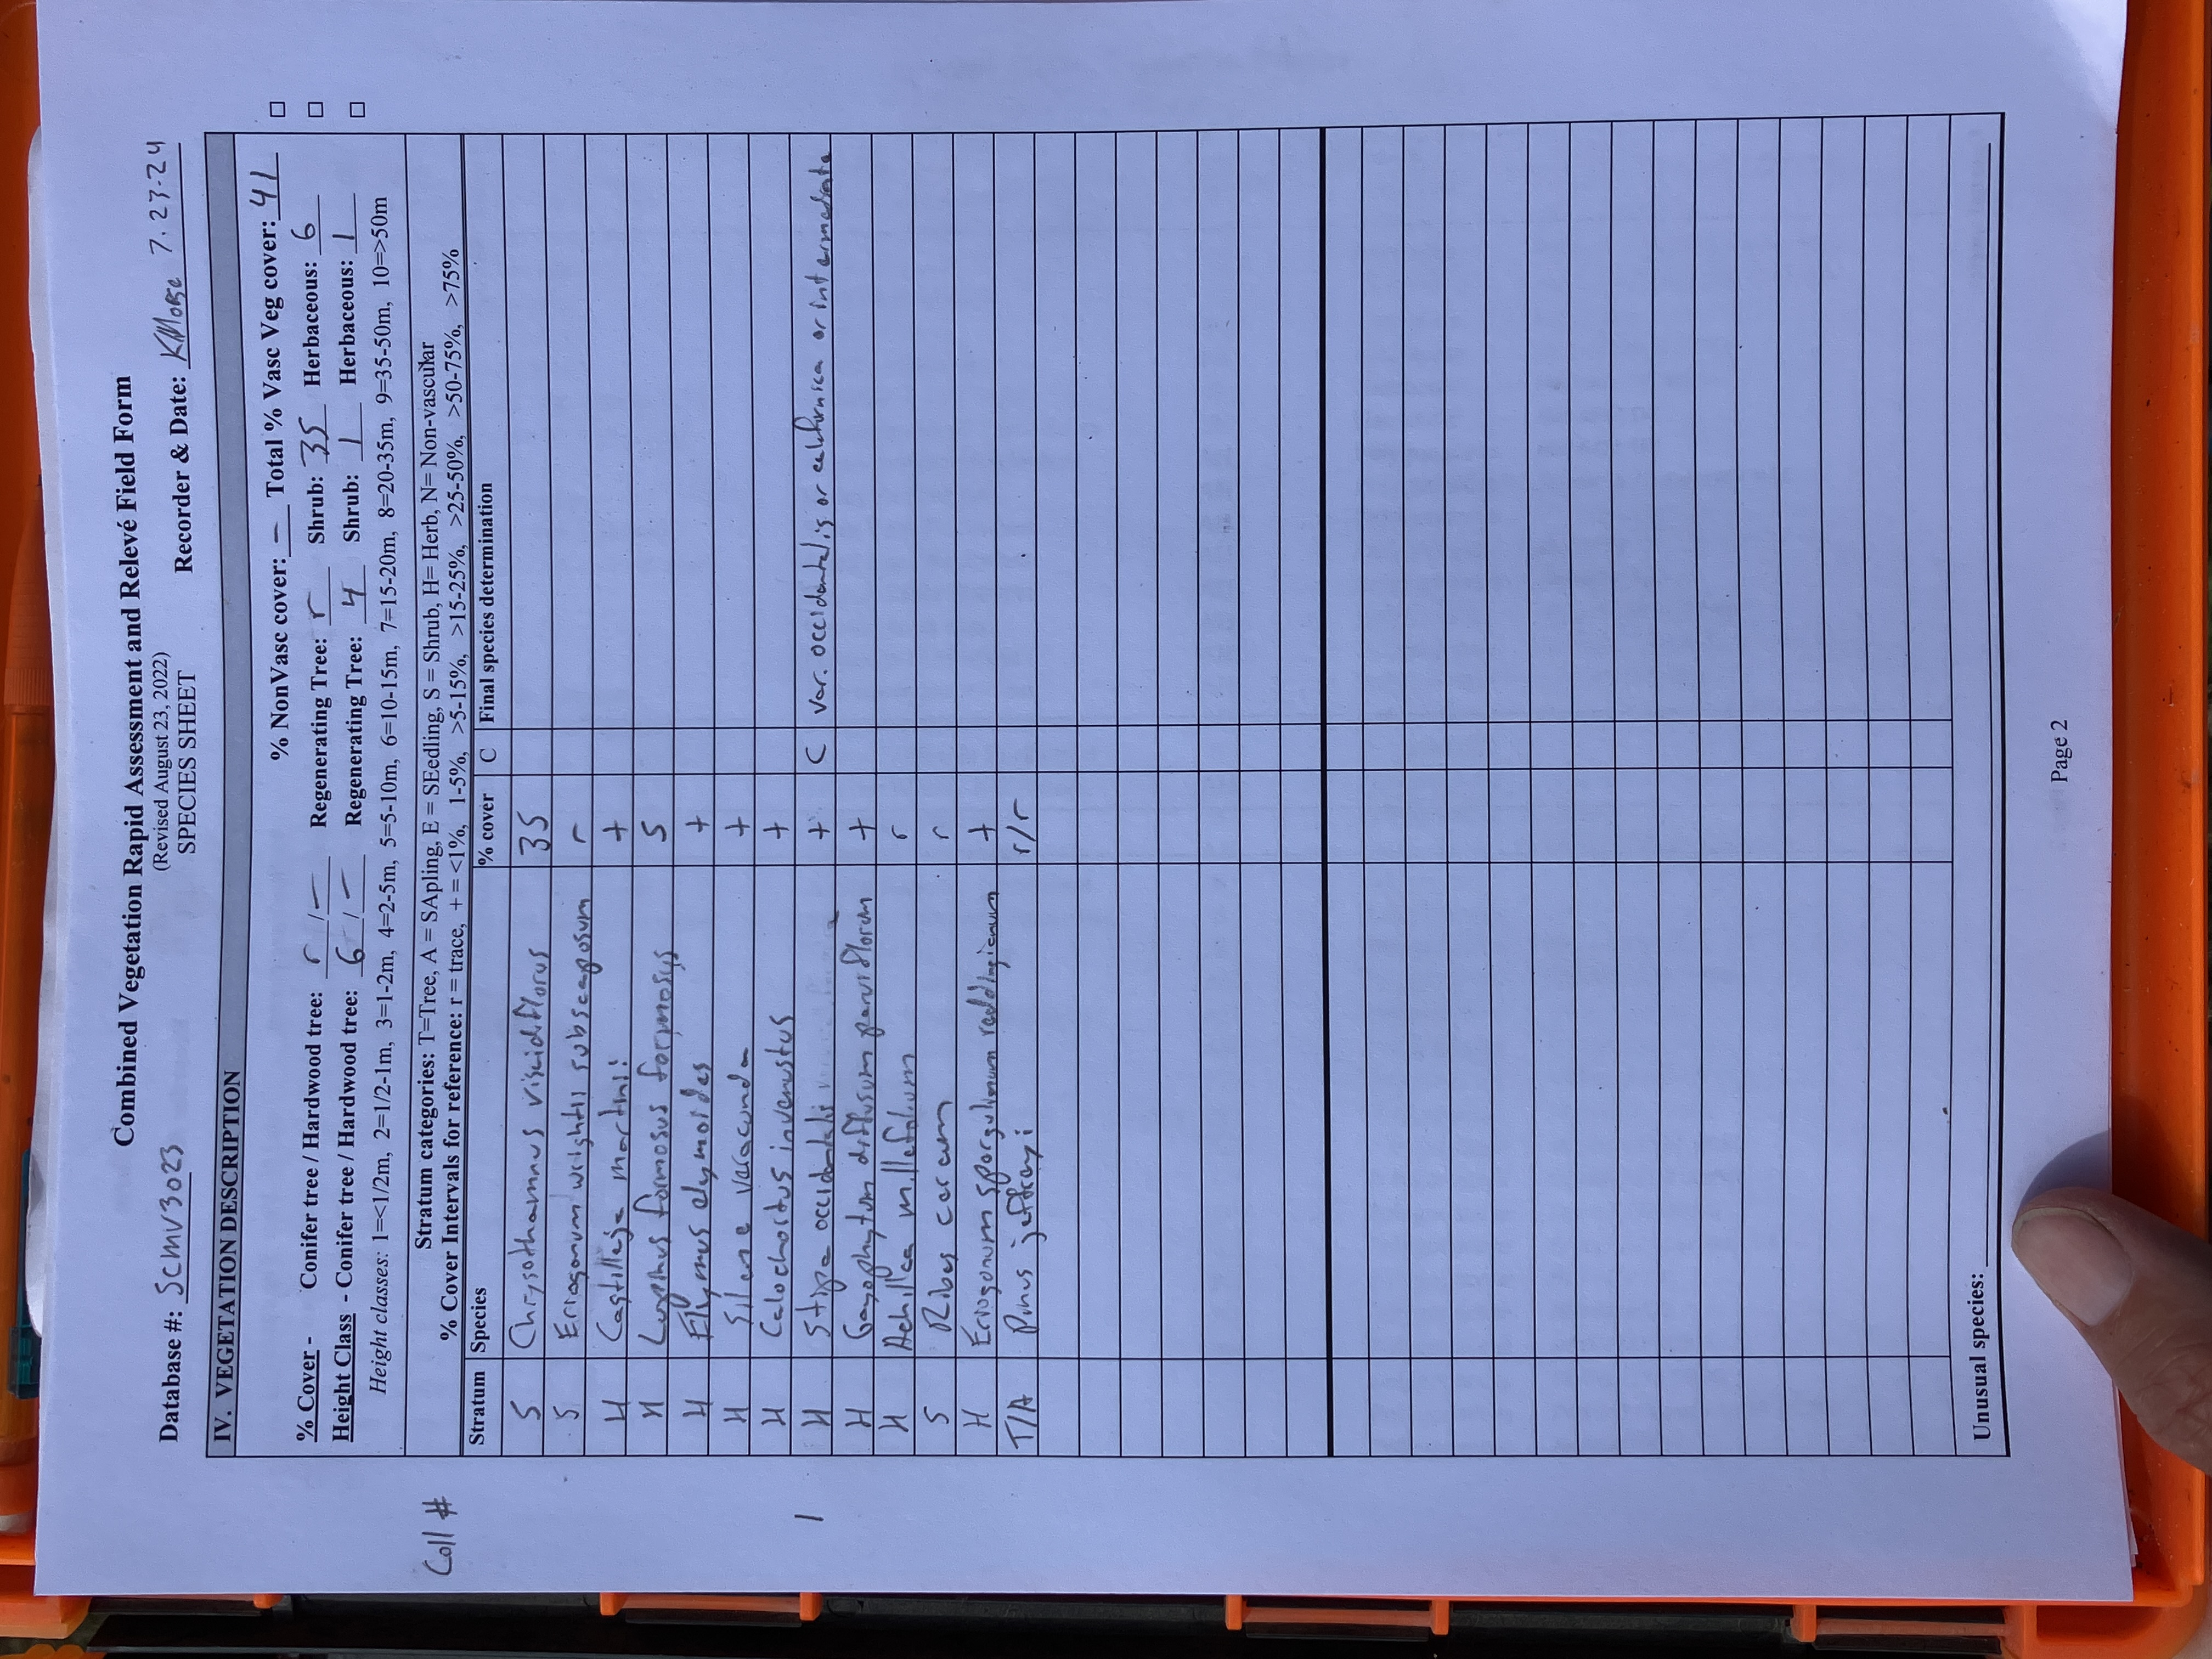 Combined Vegetation Rapid Assessment and Relevé Field Form
(Revised August 23, 2022)
SPECIES SHEET
Database #: SCMV3023 Recorder & Date: KMorse 7.23.24
IV. VEGETATION DESCRIPTION
% NonVasc cover: – Total % Vasc Veg cover: 41 □
% Cover - Conifer tree / Hardwood tree: r / – Regenerating Tree: r Shrub: 35 Herbaceous: 6 □
Height Class - Conifer tree / Hardwood tree: 6 / – Regenerating Tree: 4 Shrub: 1 Herbaceous: 1 □
Height classes: 1=<1/2m, 2=1/2-1m, 3=1-2m, 4=2-5m, 5=5-10m, 6=10-15m, 7=15-20m, 8=20-35m, 9=35-50m, 10=>50m
Coll #
Stratum categories: T=Tree, A = SApling, E = SEedling, S = Shrub, H= Herb, N= Non-vascular
% Cover Intervals for reference: r = trace, + = <1%, 1-5%, >5-15%, >15-25%, >25-50%, >50-75%, >75%
Stratum Species % cover C Final species determination
S Chrysothamnus viscidiflorus 35
S Eriogonum wrightii subscaposum r
H Castilleja martinii +
H Lupinus formosus formosus 5
H Elymus elymoides +
H Silene verecunda +
H Calochortus invenustus +
1 H Stipa occidentalis + C var. occidentalis or californica or intermediate
H Gayophytum diffusum parviflorum +
H Achillea millefolium r
S Ribes cereum r
H Eriogonum spergulinum reddingianum +
T/A Pinus jeffreyi r/r
Unusual species:
Page 2